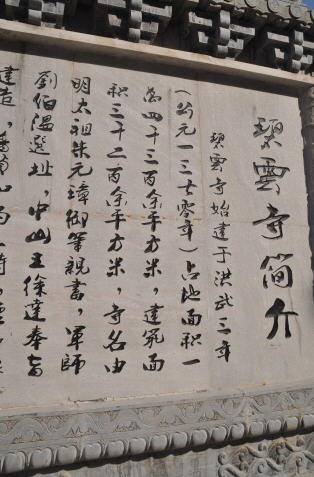 碧雲寺简介
碧雲寺始建于洪武三年
（公元一三七零年）占地面积一
萬四千三百余平方米，建筑面
积三千二百余平方米，寺名由
明太祖朱元璋御筆親書，軍師
劉伯温選址，中山王徐達奉旨
建造，